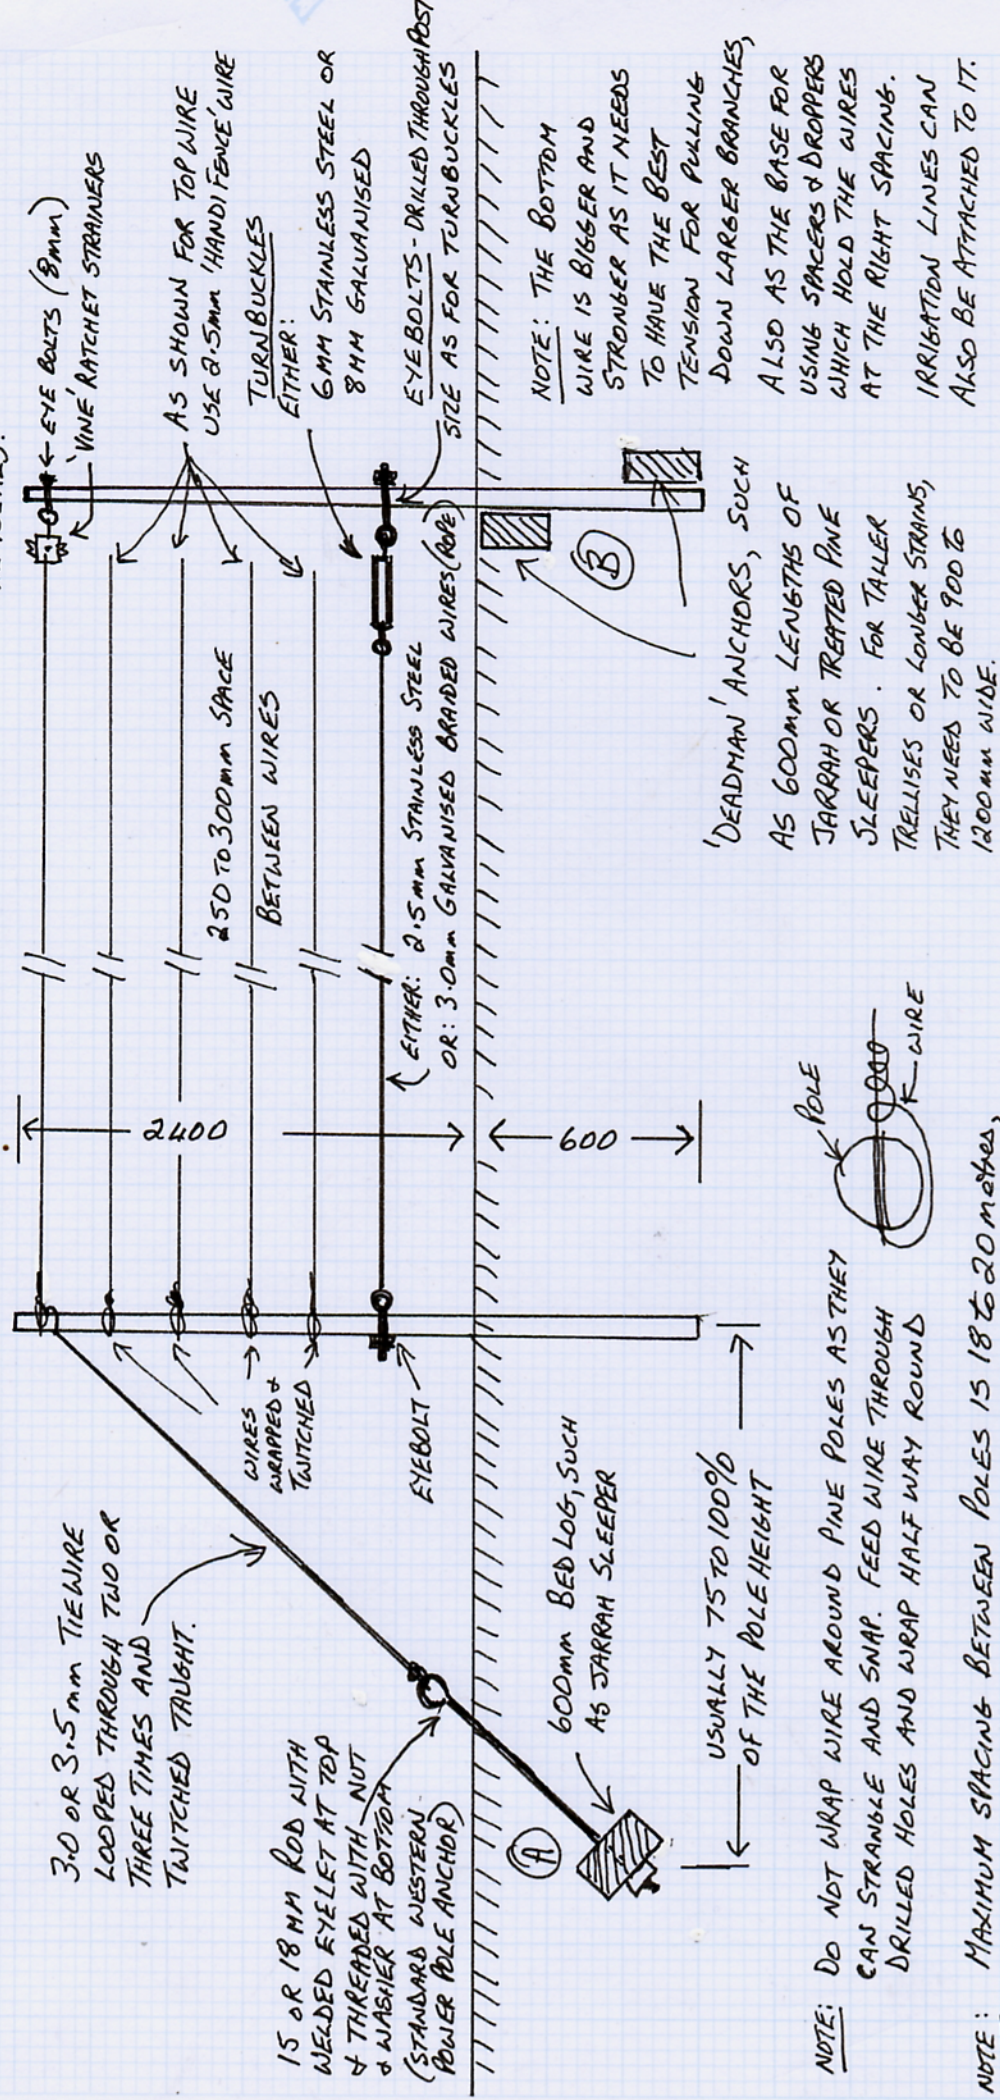 3.0 OR 3.5 mm TIE WIRE
LOOPED THROUGH TWO OR
THREE TIMES AND
TWITCHED TAUGHT.
15 OR 18 MM ROD WITH
WELDED EYELET AT TOP
& THREADED WITH NUT
& WASHER AT BOTTOM
(STANDARD WESTERN
POWER POLE ANCHOR)
WIRES
WRAPPED &
TWITCHED
EYEBOLT
A
600mm BED LOG, SUCH
AS JARRAH SLEEPER
USUALLY 75 TO 100%
OF THE POLE HEIGHT
2400
600
250 TO 300mm SPACE
BETWEEN WIRES
EITHER: 2.5mm STAINLESS STEEL
OR: 3.0mm GALVANISED BRAIDED WIRES (ROPE)
EYE BOLTS (8mm)
'VINE' RATCHET STRAINERS
AS SHOWN FOR TOP WIRE
USE 2.5mm 'HANDI FENCE' WIRE
TURNBUCKLES
EITHER:
6MM STAINLESS STEEL OR
8MM GALVANISED
EYEBOLTS - DRILLED THROUGH POST
SIZE AS FOR TURNBUCKLES
B
'DEADMAN' ANCHORS, SUCH
AS 600mm LENGTHS OF
JARRAH OR TREATED PINE
SLEEPERS. FOR TALLER
TRELLISES OR LONGER STRAINS,
THEY NEED TO BE 900 to
1200mm WIDE.
NOTE: THE BOTTOM
WIRE IS BIGGER AND
STRONGER AS IT NEEDS
TO HAVE THE BEST
TENSION FOR PULLING
DOWN LARGER BRANCHES,
ALSO AS THE BASE FOR
USING SPACERS & DROPPERS
WHICH HOLD THE WIRES
AT THE RIGHT SPACING.
IRRIGATION LINES CAN
ALSO BE ATTACHED TO IT.
NOTE: DO NOT WRAP WIRE AROUND PINE POLES AS THEY
CAN STRANGLE AND SNAP. FEED WIRE THROUGH
DRILLED HOLES AND WRAP HALF WAY ROUND
POLE
WIRE
NOTE: MAXIMUM SPACING BETWEEN POLES IS 18 to 20 metres,